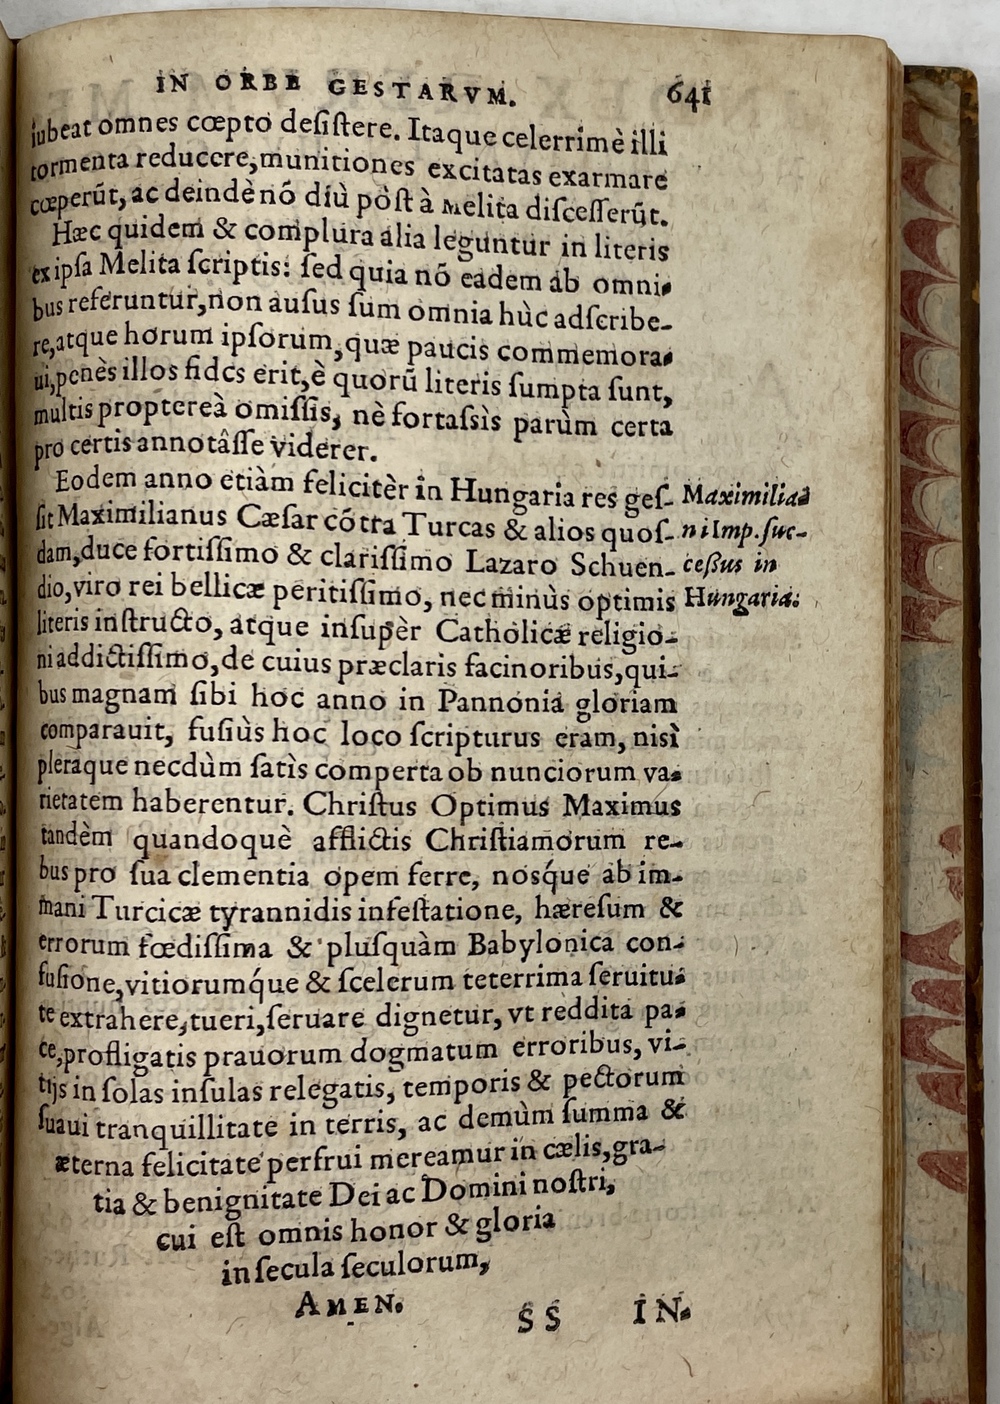 IN ORBE GESTARVM. 641
iubeat omnes cœpto deſiſtere. Itaque celerrimè illi
tormenta reducere, munitiones excitatas exarmare
cœperũt, ac deindè nõ diù pòſt à Melita diſceſſerũt.
Hæc quidem & complura alia leguntur in literis
ex ipſa Melita ſcriptis: ſed quia nõ eadem ab omni-
bus referuntur, non auſus ſum omnia hùc adſcribe-
re, atque horum ipſorum, quæ paucis commemora-
ui, penès illos fides erit, è quorũ literis ſumpta ſunt,
multis proptereà omiſſis, nè fortaſsìs parùm certa
pro certis annotâſſe viderer.
Eodem anno etiàm felicitèr in Hungaria res geſ-
ſit Maximilianus Cæſar cõtra Turcas & alios quoſ-
dam, duce fortiſſimo & clariſſimo Lazaro Schuen-
dio, viro rei bellicæ peritiſſimo, nec minùs optimis
literis inſtructo, atque inſupèr Catholicæ religio-
ni addictiſſimo, de cuius præclaris facinoribus, qui-
bus magnam ſibi hoc anno in Pannonia gloriam
comparauit, fuſiùs hoc loco ſcripturus eram, nisì
pleraque necdùm ſatìs comperta ob nunciorum va-
rietatem haberentur. Chriſtus Optimus Maximus
tandèm quandoquè afflictis Chriſtiamorum re-
bus pro ſua clementia opem ferre, nosq́ue ab im-
mani Turcicæ tyrannidis infeſtatione, hæreſum &
errorum fœdiſſima & pluſquàm Babylonica con-
fuſione, vitiorumq́ue & ſcelerum teterrima ſeruitu-
te extrahere, tueri, ſeruare dignetur, vt reddita pa-
ce, profligatis prauorum dogmatum erroribus, vi-
tijs in ſolas inſulas relegatis, temporis & pectorum
ſuaui tranquillitate in terris, ac demùm ſumma &
æterna felicitate perfrui mereamur in cælis, gra-
tia & benignitate Dei ac Domini noſtri,
cui eſt omnis honor & gloria
in ſecula ſeculorum,
AMEN.
SS IN-
Maximilia-
ni Imp. ſuc-
ceßus in
Hungaria.